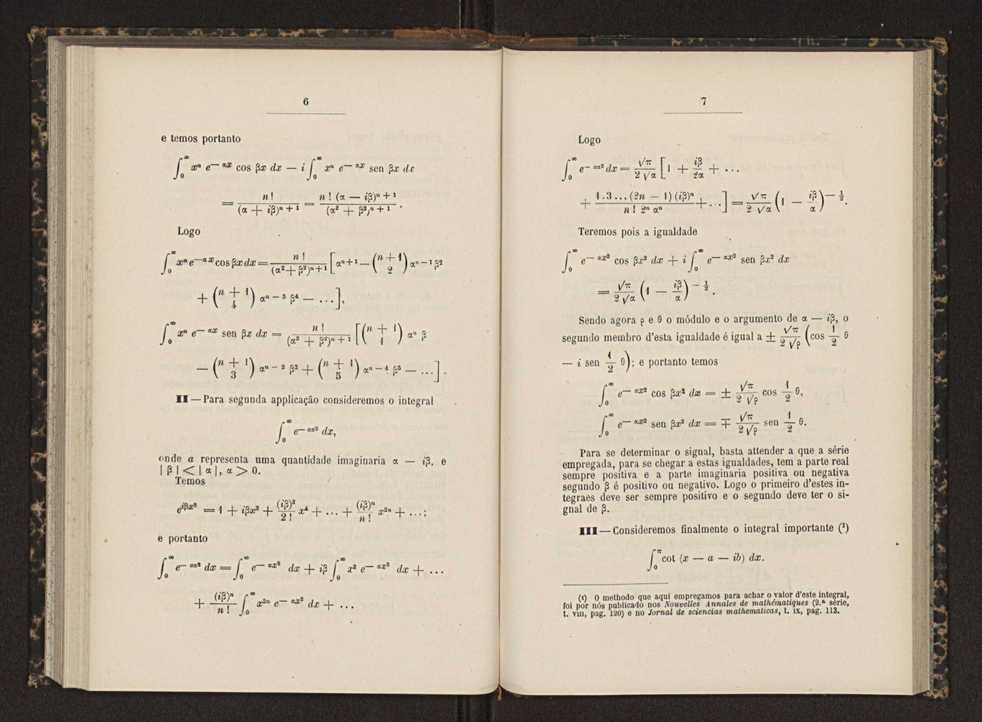 6
e temos portanto
∫₀^∞ xⁿ e^{— αx} cos βx dx — i ∫₀^∞ xⁿ e^{— αx} sen βx dx
= n ! / (α + iβ)^{n + 1} = n ! (α — iβ)^{n + 1} / (α² + β²)^{n + 1} .
Logo
∫₀^∞ xⁿ e^{—αx} cos βx dx = n ! / (α² + β²)^{n + 1} [ α^{n + 1} — (n + 1 / 2) α^{n — 1} β²
+ (n + 1 / 4) α^{n — 3} β⁴ — . . . ],
∫₀^∞ xⁿ e^{— αx} sen βx dx = n ! / (α² + β²)^{n + 1} [ (n + 1 / 1) αⁿ β
— (n + 1 / 3) α^{n — 2} β³ + (n + 1 / 5) α^{n — 4} β⁵ — . . . ] .
II — Para segunda applicação consideremos o integral
∫₀^∞ e^{— ax²} dx,
onde a representa uma quantidade imaginaria α — iβ, e
| β | < | α |, α > 0.
Temos
e^{iβx²} = 1 + iβx² + (iβ)² / 2 ! x⁴ + . . . + (iβ)ⁿ / n ! x^{2n} + . . . ;
e portanto
∫₀^∞ e^{— ax²} dx = ∫₀^∞ e^{— αx²} dx + iβ ∫₀^∞ x² e^{— αx²} dx + . . .
+ (iβ)ⁿ / n ! ∫₀^∞ x^{2n} e^{— αx²} dx + . . .
7
Logo
∫₀^∞ e^{— ax²} dx = √π / 2 √α [ 1 + iβ / 2α + . . .
+ 1 . 3 . . . (2n — 1) (iβ)ⁿ / n ! 2ⁿ αⁿ + . . . ] = √π / 2 √α (1 — iβ / α)^{— 1/2}.
Teremos pois a igualdade
∫₀^∞ e^{— αx²} cos βx² dx + i ∫₀^∞ e^{— αx²} sen βx² dx
= √π / 2 √α (1 — iβ / α)^{— 1/2} .
Sendo agora ρ e θ o módulo e o argumento de α — iβ, o
segundo membro d'esta igualdade é igual a ± √π / 2 √ρ (cos 1/2 θ
— i sen 1/2 θ); e portanto temos
∫₀^∞ e^{— αx²} cos βx² dx = ± √π / 2 √ρ cos 1/2 θ,
∫₀^∞ e^{— αx²} sen βx² dx = ∓ √π / 2 √ρ sen 1/2 θ.
Para se determinar o signal, basta attender a que a série
empregada, para se chegar a estas igualdades, tem a parte real
sempre positiva e a parte imaginaria positiva ou negativa
segundo β é positivo ou negativo. Logo o primeiro d'estes in-
tegraes deve ser sempre positivo e o segundo deve ter o si-
gnal de β.
III — Consideremos finalmente o integral importante (¹)
∫₀^π cot (x — a — ib) dx.
(1) O methodo que aqui empregamos para achar o valor d'este integral,
foi por nós publicado nos Nouvelles Annales de mathématiques (2.ª série,
t. VIII, pag. 120) e no Jornal de sciencias mathematicas, t. IX, pag. 113.